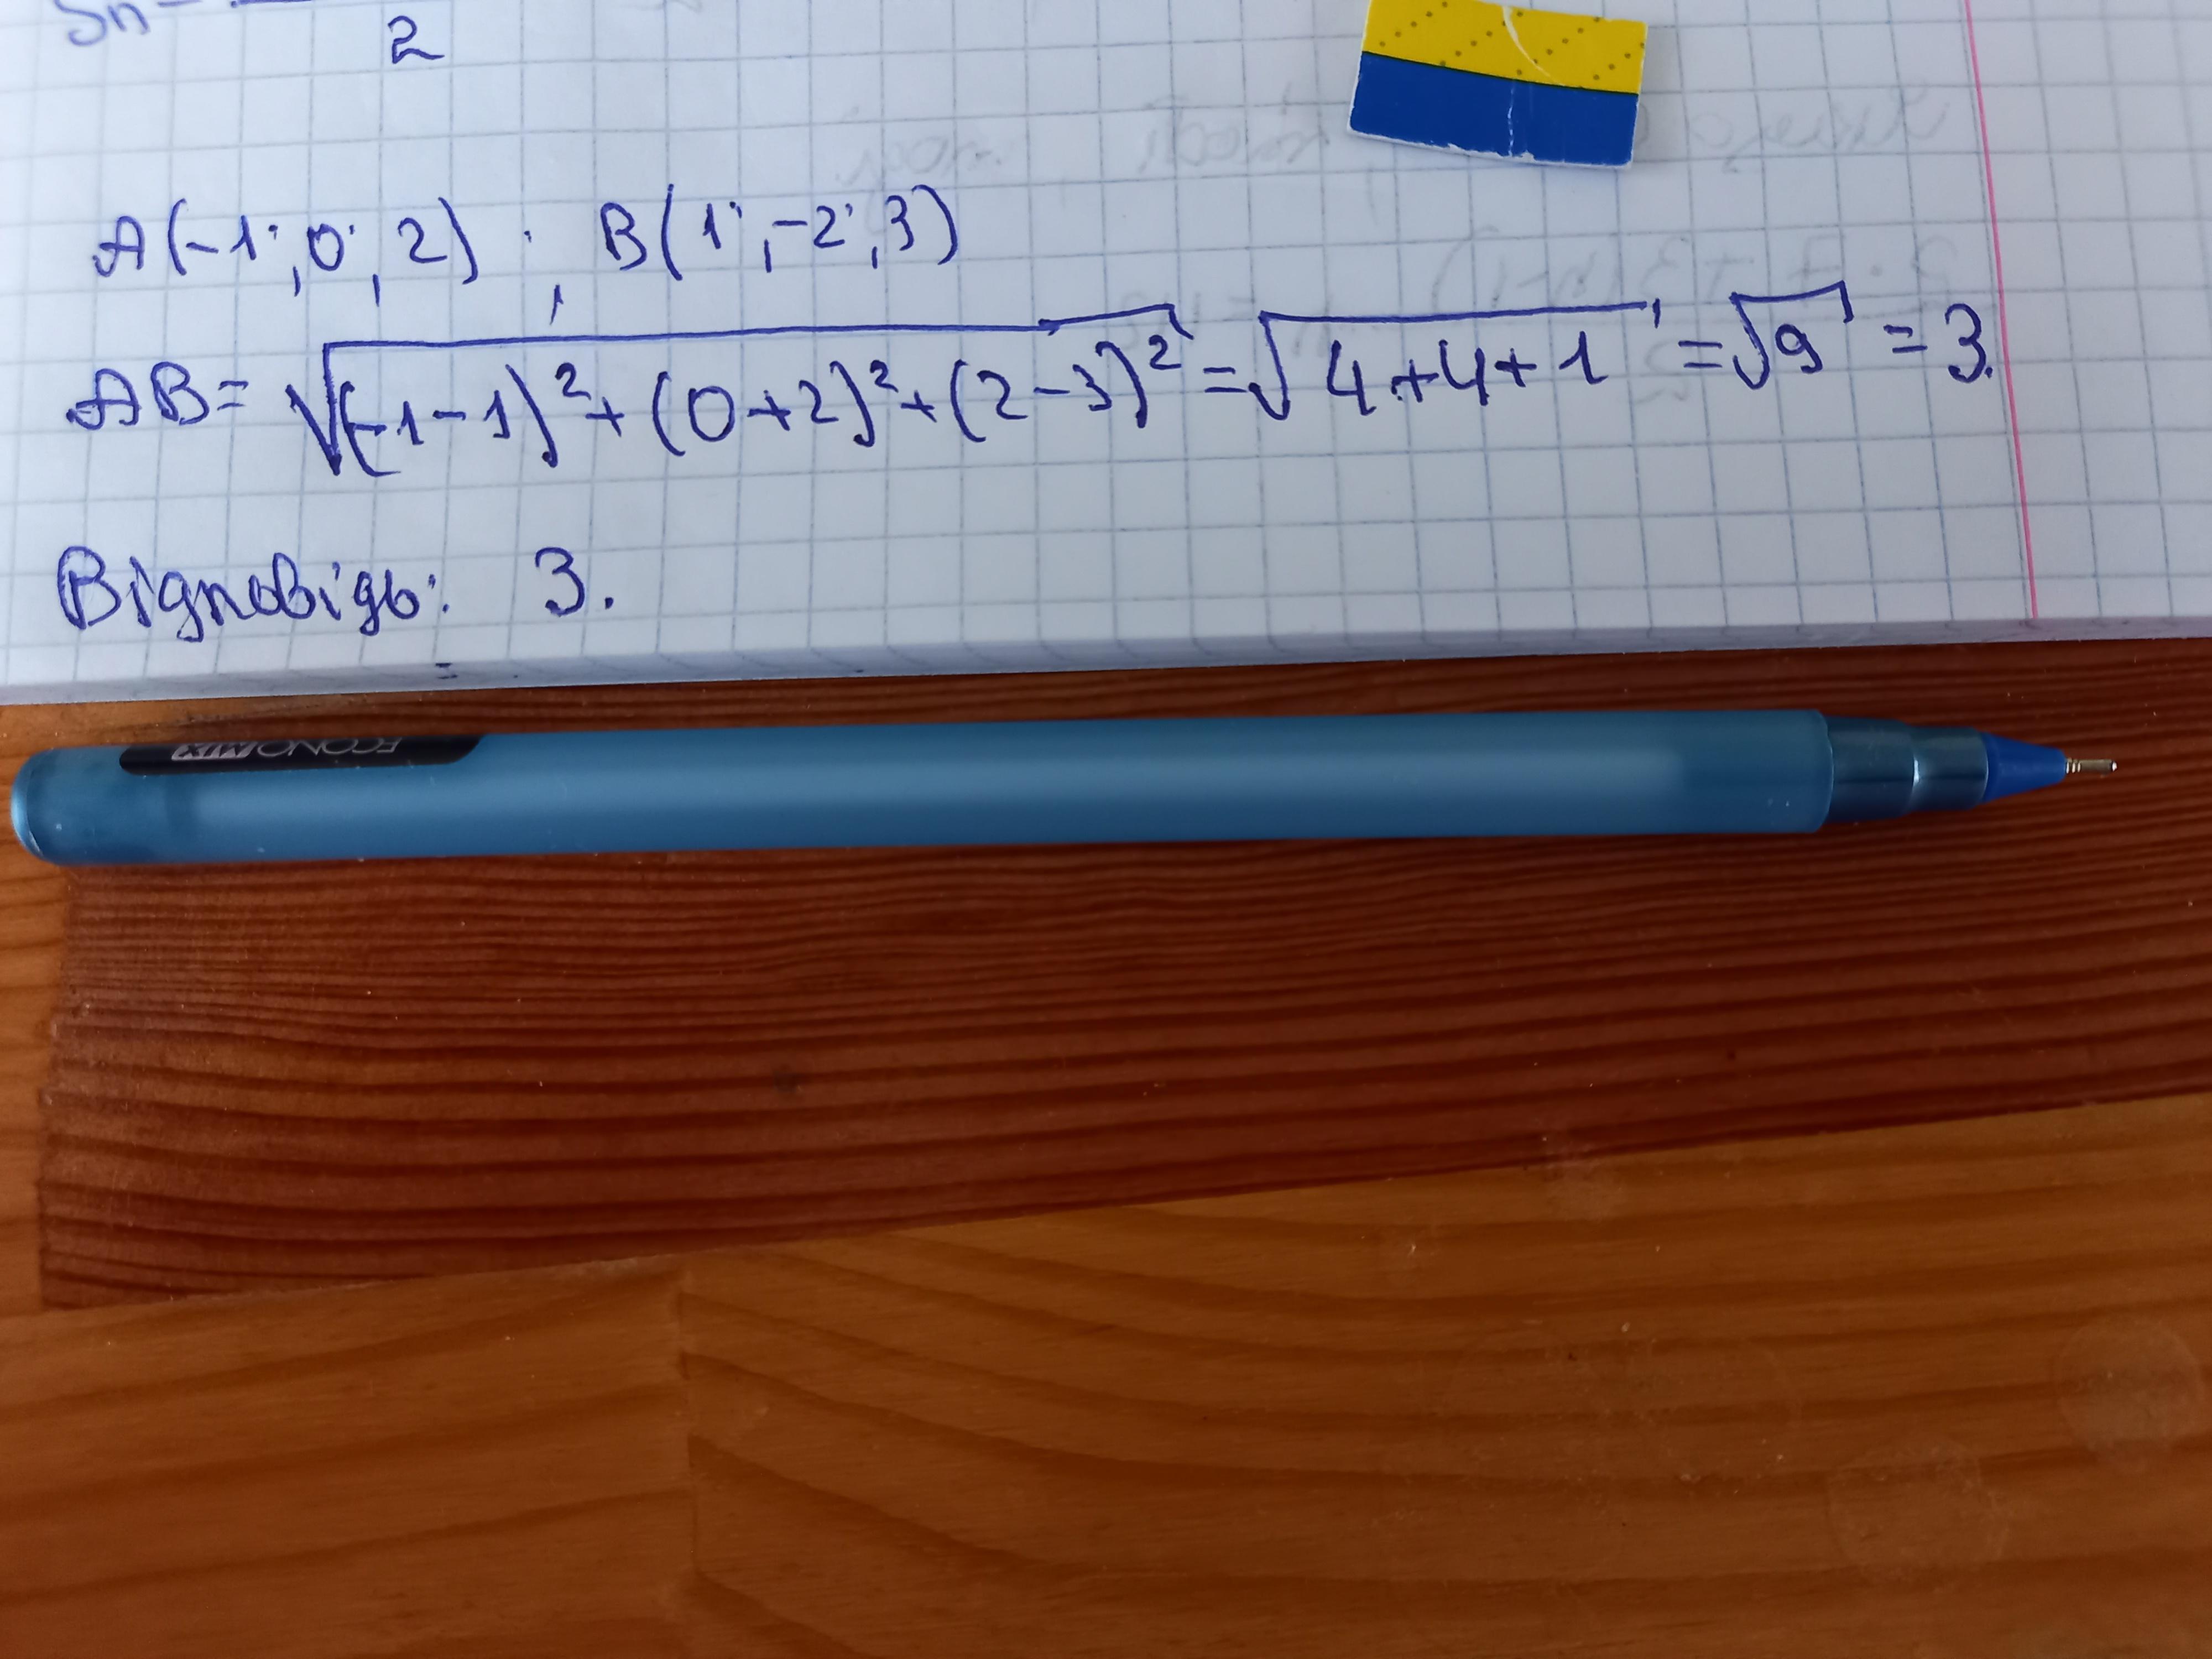 Sn=
2
A(-1; 0; 2) ; B(1; -2; 3)
AB= √(-1-1)²+(0+2)²+(2-3)² = √4+4+1 = √9 = 3.
Відповідь: 3.
ECONOMIX